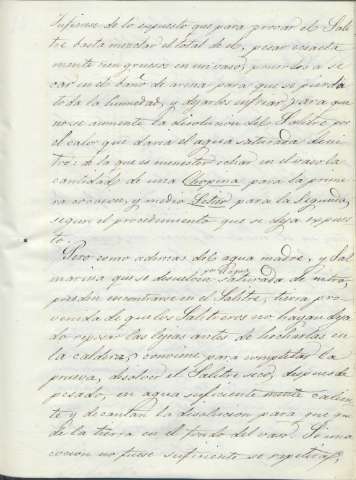 Infierese de lo expuesto que para provar el Sali-
tre basta mezclar el total de el, pesar exacta
mente un grueso en un vaso, ponerlo a se
car en el baño de arena para que se pierda
toda la humedad, y dejarlo enfriar para que
no se aumente la disolucion del Salitre por
el calor que daria el agua saturada de ni
tro: de la que es menester echar en el vaso la
cantidad de una Chopina para la prime
ra cocion, y medio Setier para la Segunda,
segun el procedimiento que se deja expues
to.
Pero como ademas del agua madre, y Sal
marina que se disuelve por el agua saturada de nitro,
pueden encontrarse en el Salitre, tierra pro-
venida de que los Salitreros no hayan deja
do reposar las lejias antes de hecharlas en
la caldera, conviene para completar la
prueva, disolver el Salitre seco, despues de
pesado, en agua suficientemente calien
te y decantar la disolucion para que que
de la tierra en el fondo del vaso. Si una
cocion no fuese suficiente se repetirá,